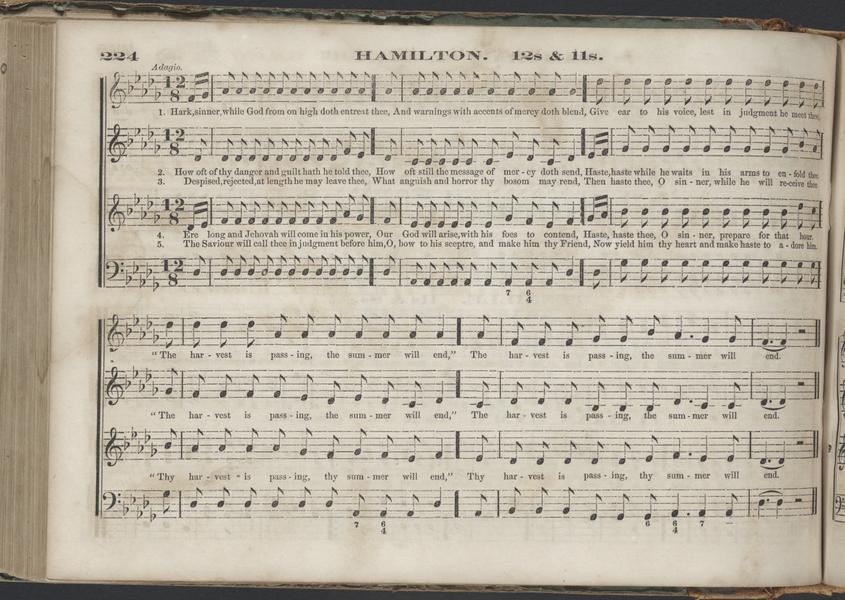 224 HAMILTON. 12s & 11s.
Adagio.
1. Hark, sinner, while God from on high doth entreat thee, And warnings with accents of mercy doth blend, Give ear to his voice, lest in judgment he meet thee,
2. How oft of thy danger and guilt hath he told thee, How oft still the message of mer - cy doth send, Haste, haste while he waits in his arms to en - fold thee
3. Despised, rejected, at length he may leave thee, What anguish and horror thy bosom may rend, Then haste thee, O sin - ner, while he will re-ceive thee
4. Ere long and Jehovah will come in his power, Our God will arise, with his foes to contend, Haste, haste thee, O sin - ner, prepare for that hour.
5. The Saviour will call thee in judgment before him, O, bow to his sceptre, and make him thy Friend, Now yield him thy heart and make haste to a - dore him.
7 6
4
“The har - vest is pass - ing, the sum - mer will end,” The har - vest is pass - ing, the sum - mer will end.
“The har - vest is pass - ing, the sum - mer will end,” The har - vest is pass - ing, the sum - mer will end.
“Thy har - vest is pass - ing, thy sum - mer will end,” Thy har - vest is pass - ing, thy sum - mer will end.
7 6 6 6 7
4 4